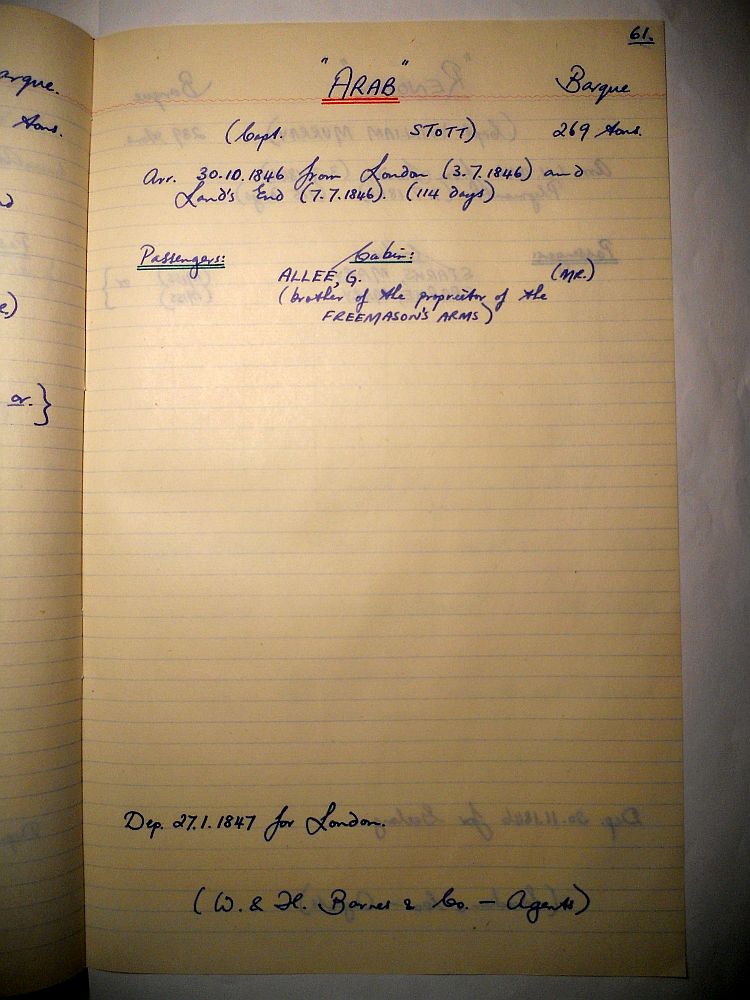 61.
"ARAB" Barque
(Capt. STOTT) 269 tons.
Arr. 30.10.1846 from London (3.7.1846) and
Land's End (7.7.1846). (114 days)
Passengers: Cabin:
ALLEE, G. (MR.)
(brother of the proprietor of the
FREEMASON'S ARMS)
Dep. 27.1.1847 for London.
(W. & H. Barnes & Co. — Agents)
arque.
tons.
or. }